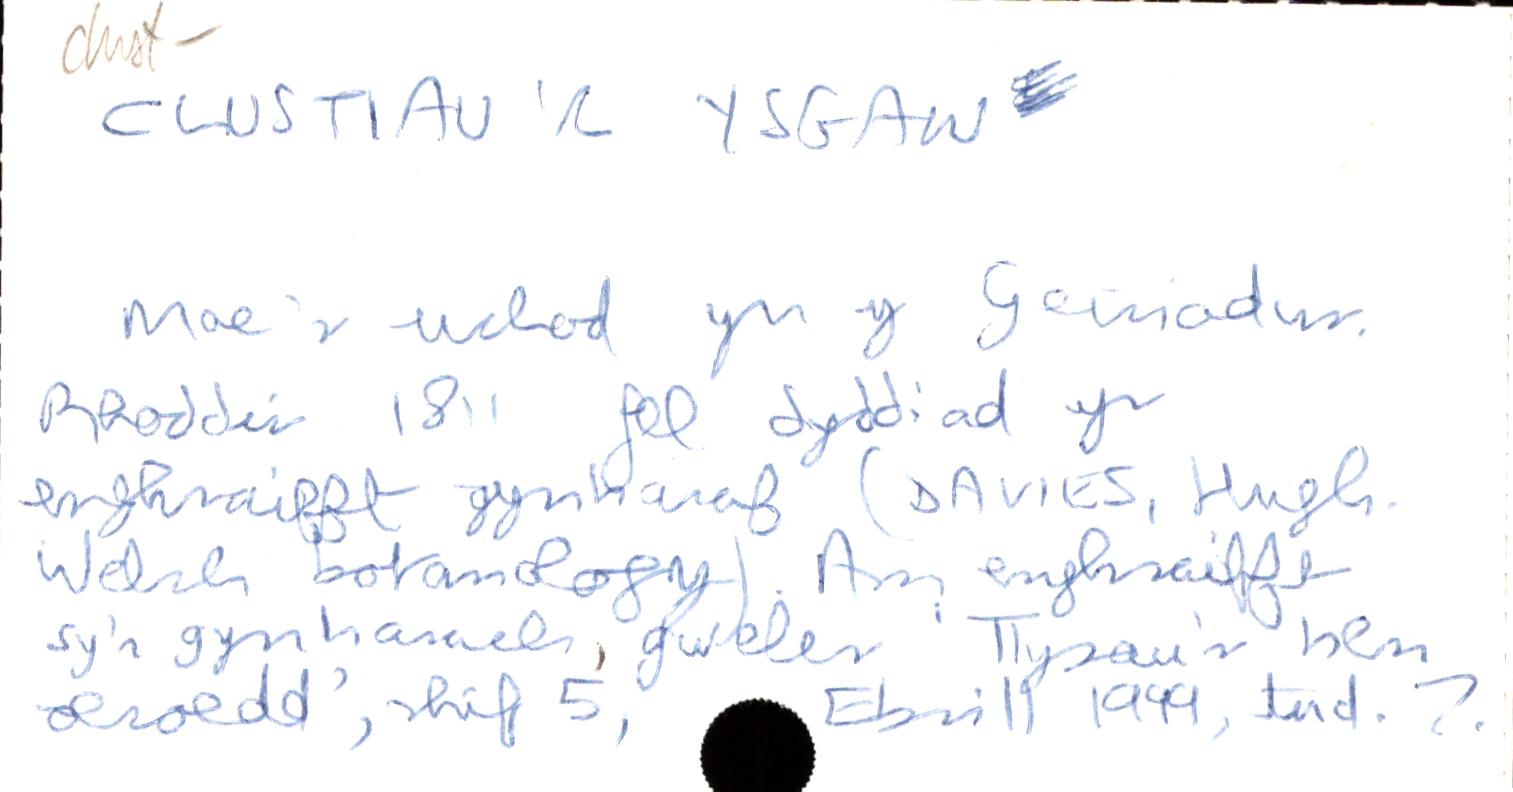 clust -
CLUSTIAU'R YSGAW
Mae'r uchod yn y Geiriadur.
Rhoddir 1811 fel dyddiad yr
enghraifft gynharaf (DAVIES, Hugh.
Welsh botanology). Am enghraifft
sy'n gynharach, gweler 'Tlysau'r hen
oesoedd', rhif 5, Ebrill 1999, tud. 7.